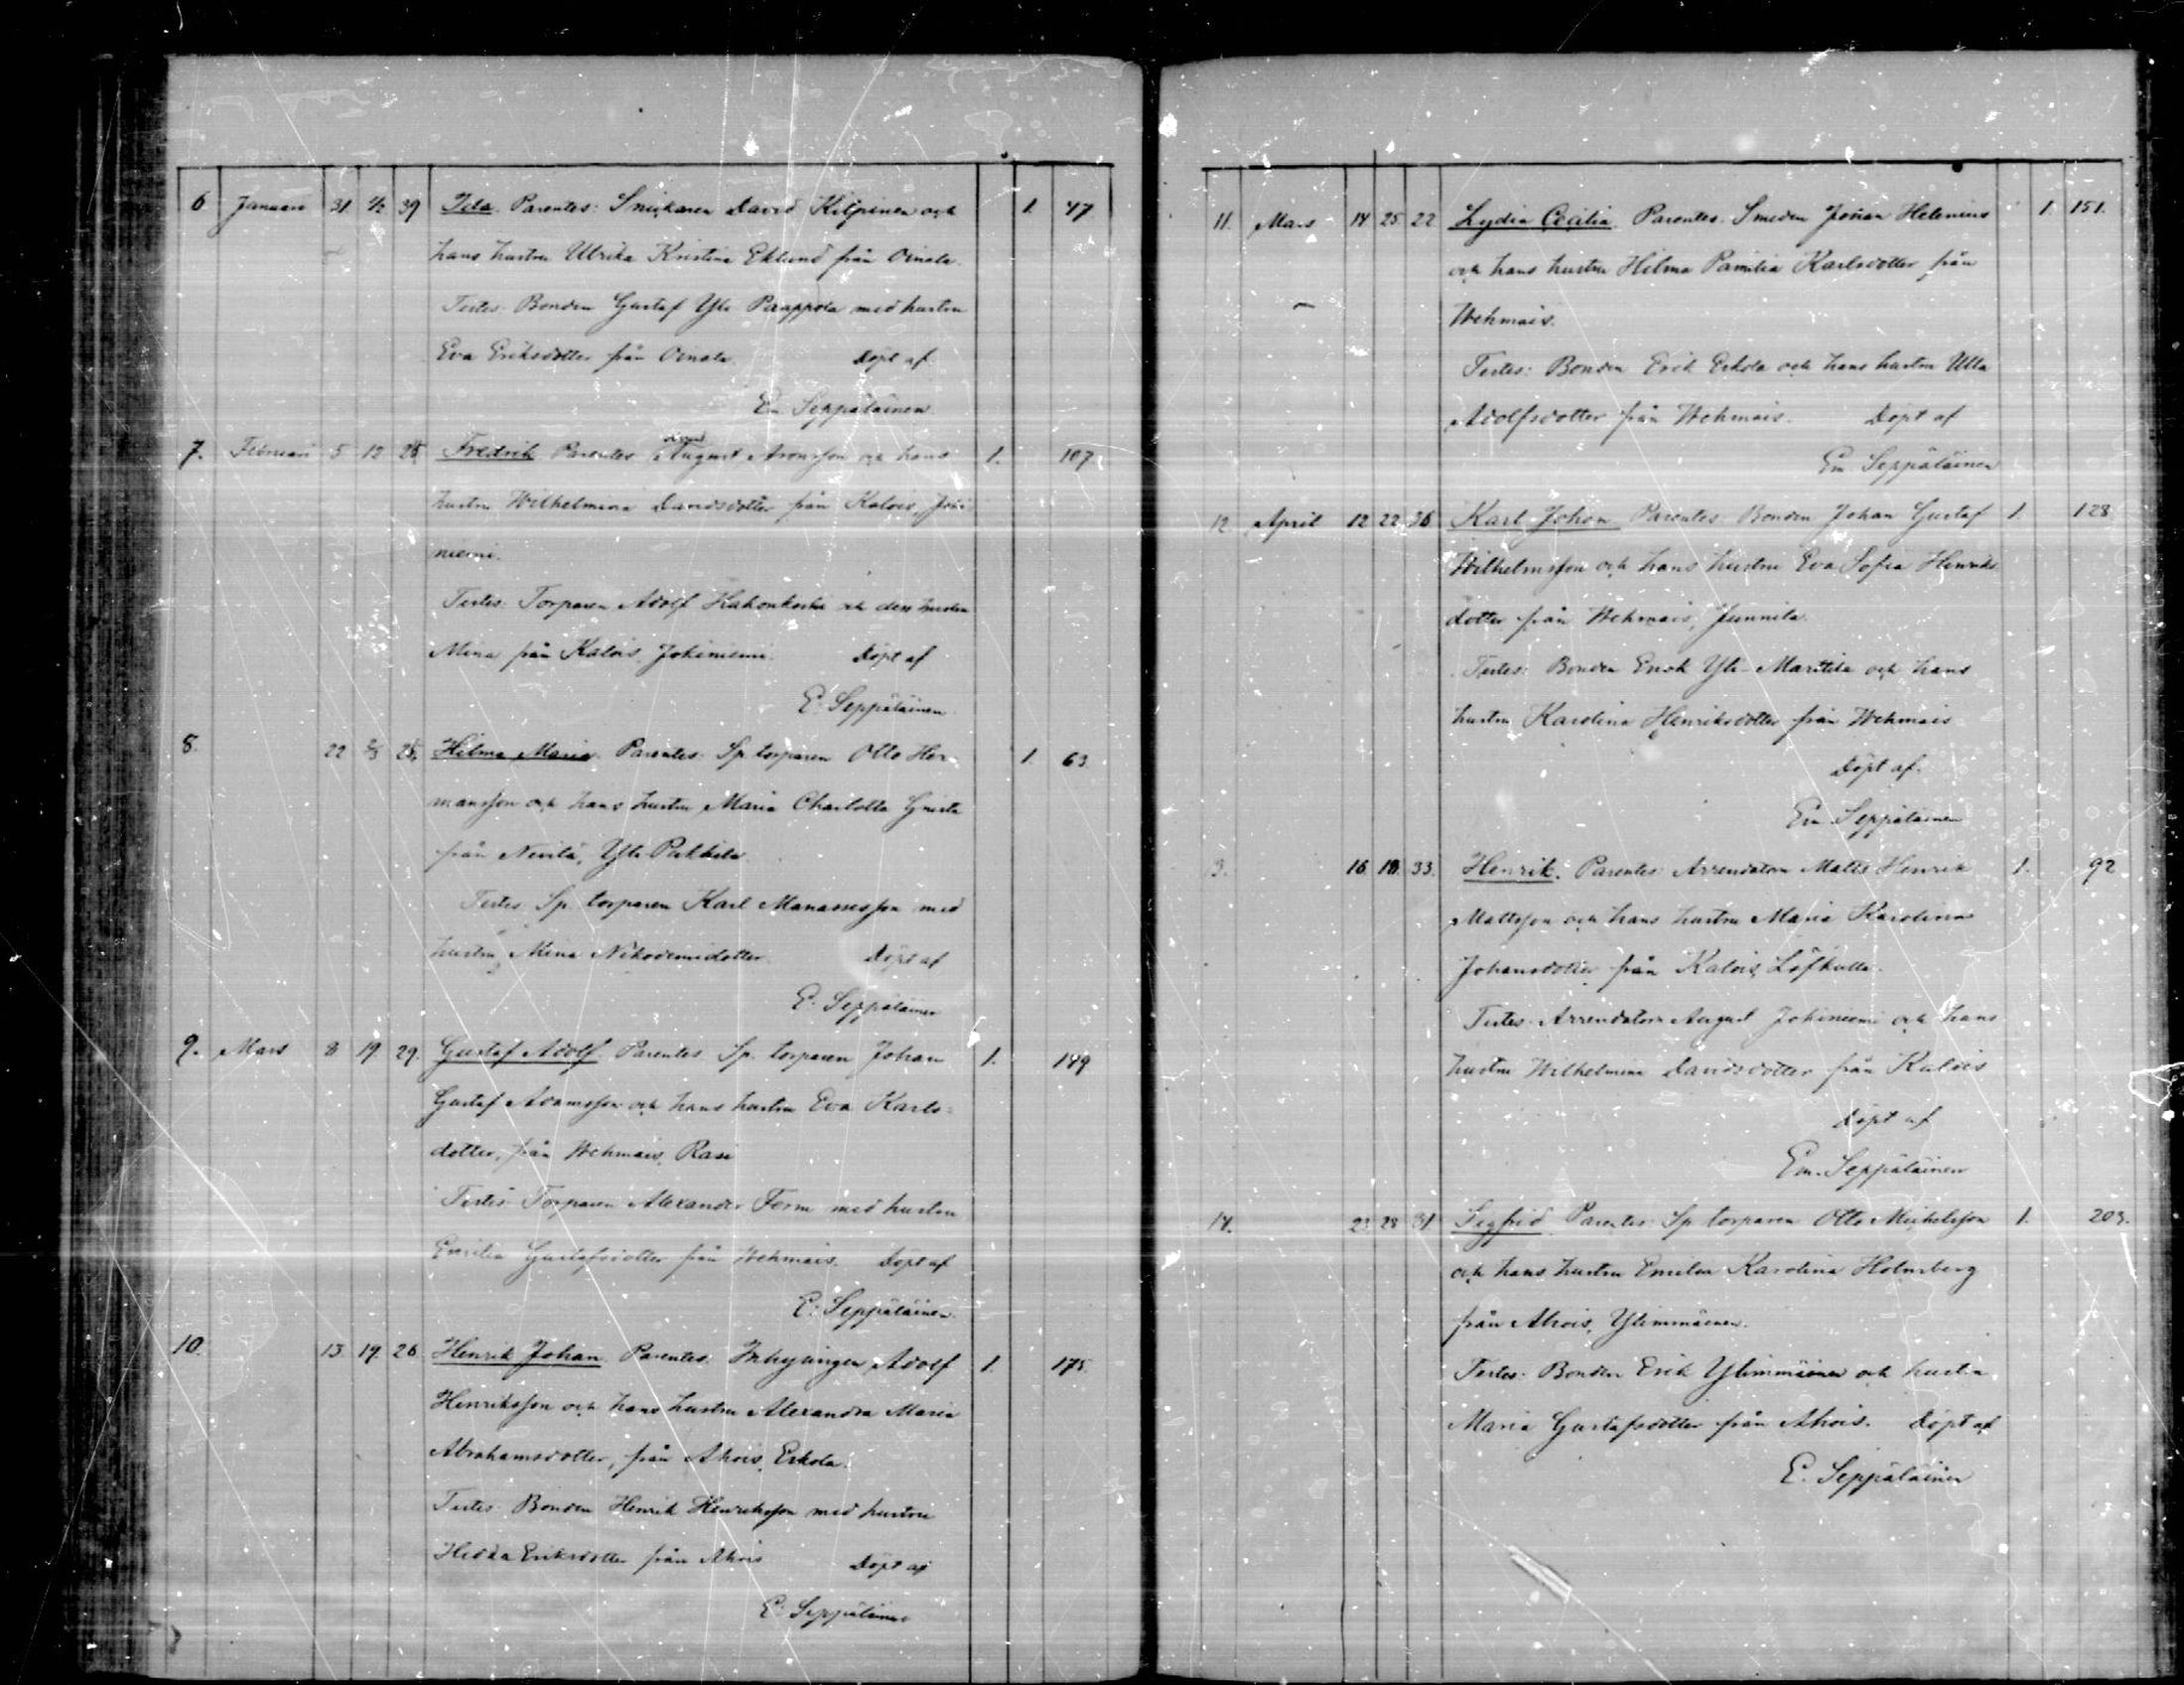 6 Januari 31 1/2 39 Ida. Parentes: Snickaren David Kilpinen och 1. 47
hans hustru Ulrika Kristina Eklund från Oinala.
Testes: Bonden Gustaf Yli Paappola med hustru
Eva Eriksdotter från Oinala. Döpt af
Em Seppäläinen
7. Februari 5 12 Fredrik Parentes August Aronsson och hans 1. 107
hustru Wilhelmina Davidsdotter från Kalois, Joki
niemi.
Testes: Torparen Adolf Hakonkoski och dess hustru
Mina från Kalois, Jokiniemi. Döpt af
E. Seppäläinen
8. 22 Hilma Maria. Parentes: Sp. torparen Otto Her-
mansson och hans hustru Maria Charlotta 1 63
från Nevilä, Yli Pukkila
Testes Sp. torparen Karl Manassesson med
hustru Mina Nikodemidotter. Döpt af
E. Seppäläinen
9. Mars 8 19 29. Gustaf Adolf Parentes Sp. torparen Johan 1. 149
Gustaf Adamsson och hans hustru Eva Karls=
dotter, från Wehmais, Rasi
Testes Torparen Alexander Form med hustru
Emilia Gustafsdotter från Wehmais. Döpt af
E. Seppäläinen.
10. 13 19. 26 Henrik Johan Parentes: Inhysingen Adolf 1. 175.
Henriksson och hans hustru Alexandra Maria
Abrahamsdotter, från Ahois, Erkola.
Testes: Bonden Henrik Henriksson med hustru
Hedda Eriksdotter från Ahois Döpt af
E. Seppäläinen
11. Mars 14 25 22 Lydia Cecilia. Parentes: Smeden Johan Helenius 1. 151.
och hans hustru Hilma Pamilia Karlsdotter från
Wehmais.
Testes: Bonden Erik Erkola och hans hustru Ulla
Adolfsdotter från Wehmais. Döpt af
Em Seppäläinen
12. April 12 22 36 Karl Johan Parentes: Bonden Johan Gustaf 1. 128
Wilhelmsson och hans hustru Eva Sofia Henriks
dotter från Wehmais, Junnila.
Testes: Bonden Enok Yli-Marttila och hans
hustru Karolina Henriksdotter från Wehmais
Döpt af.
Em Seppäläinen
3. 16 18. 33. Henrik. Parentes: Arrendatorn Matts Henrik 1. 92
Mattsson och hans hustru Maria Karolina
Johansdotter från Kalois, Löfkulla.
Testes: Arrendatorn August Jokiniemi och hans
hustru Wilhelmina Davidsdotter från Kalois
Döpt af
Em. Seppäläinen
14. 23 28 31 Sigfrid Parentes: Sp torparen Otto Michelsson 1. 203.
och hans hustru Emilia Karolina Holmberg
från Ahois, Ylimmäinen.
Testes: Bonden Erik Ylimmäinen och hustru
Maria Gustafsdotter från Ahois. Döpt af
E. Seppäläinen